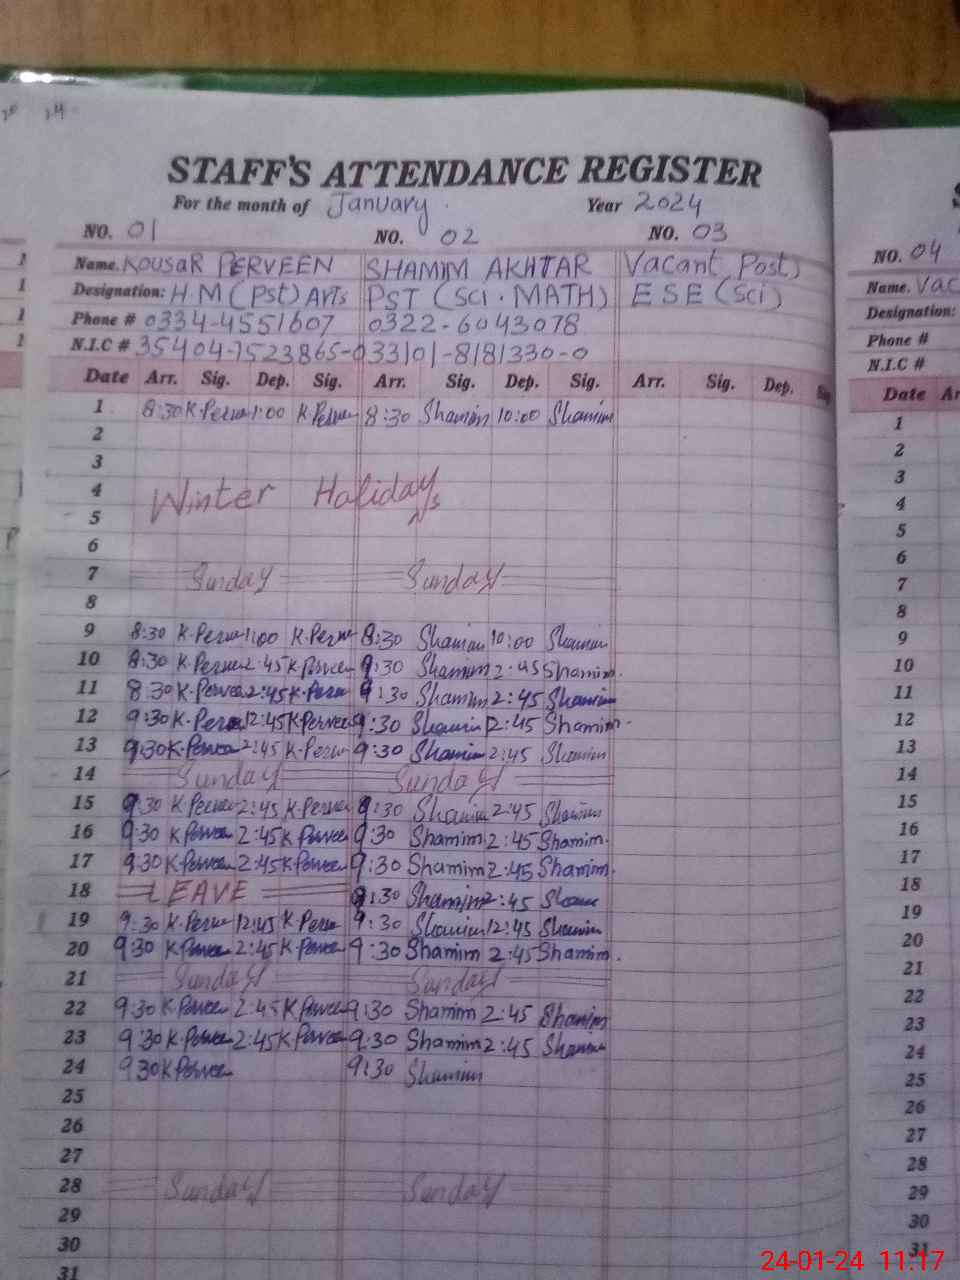 20 24
STAFF'S ATTENDANCE REGISTER
For the month of January. Year 2024
NO. 01 NO. 02 NO. 03
Name. KOUSAR PERVEEN SHAMIM AKHTAR Vacant Post)
Designation: H.M (PST) Arts PST (SCI. MATH) ESE (Sci)
Phone # 0334-4551607 0322-6043078
N.I.C # 35404-1523865-0 33101-8181330-0
Date Arr. Sig. Dep. Sig. Arr. Sig. Dep. Sig. Arr. Sig. Dep. Sig
1 8:30 K.Perve 1:00 K.Perve 8:30 Shamim 10:00 Shamim
2
3
4 Winter Halidays
5
6
7 Sunday Sunday
8
9 8:30 K.Perve 1:00 K.Perve 8:30 Shamim 10:00 Shamim
10 8:30 K.Perve 2:45 K.Pervee 9:30 Shamim 2:45 Shamim.
11 8:30 K.Pervee 2:45 K.Perve 9:30 Shamim 2:45 Shamim
12 9:30 K.Perve 12:45 K.Pervee 9:30 Shamim 12:45 Shamim.
13 9:30 K.Pervee 2:45 K.Perve 9:30 Shamim 2:45 Shamim
14 Sunday Sunday
15 9:30 K.Perve 2:45 K.Perve 9:30 Shamim 2:45 Shamim
16 9:30 K Pervee 2:45 K Pervee 9:30 Shamim 2:45 Shamim.
17 9:30 K Pervee 2:45 K Pervee 9:30 Shamim 2:45 Shamim.
18 LEAVE 9:30 Shamim 2:45 Shamim
19 9:30 K.Perve 12:45 K.Perve 9:30 Shamim 12:45 Shamim
20 9:30 K.Pervee 2:45 K.Pervee 9:30 Shamim 2:45 Shamim.
21 Sunday Sunday
22 9:30 K Pervee 2:45 K Pervee 9:30 Shamim 2:45 Shamim
23 9:30 K Pervee 2:45 K Pervee 9:30 Shamim 2:45 Shamim
24 9:30 K Pervee 9:30 Shamim
25
26
27
28 Sunday Sunday
29
30
31
NO. 04
Name. Vac
Designation:
Phone #
N.I.C #
Date Ar
1
2
3
4
5
6
7
8
9
10
11
12
13
14
15
16
17
18
19
20
21
22
23
24
25
26
27
28
29
30
31
24-01-24 11:17